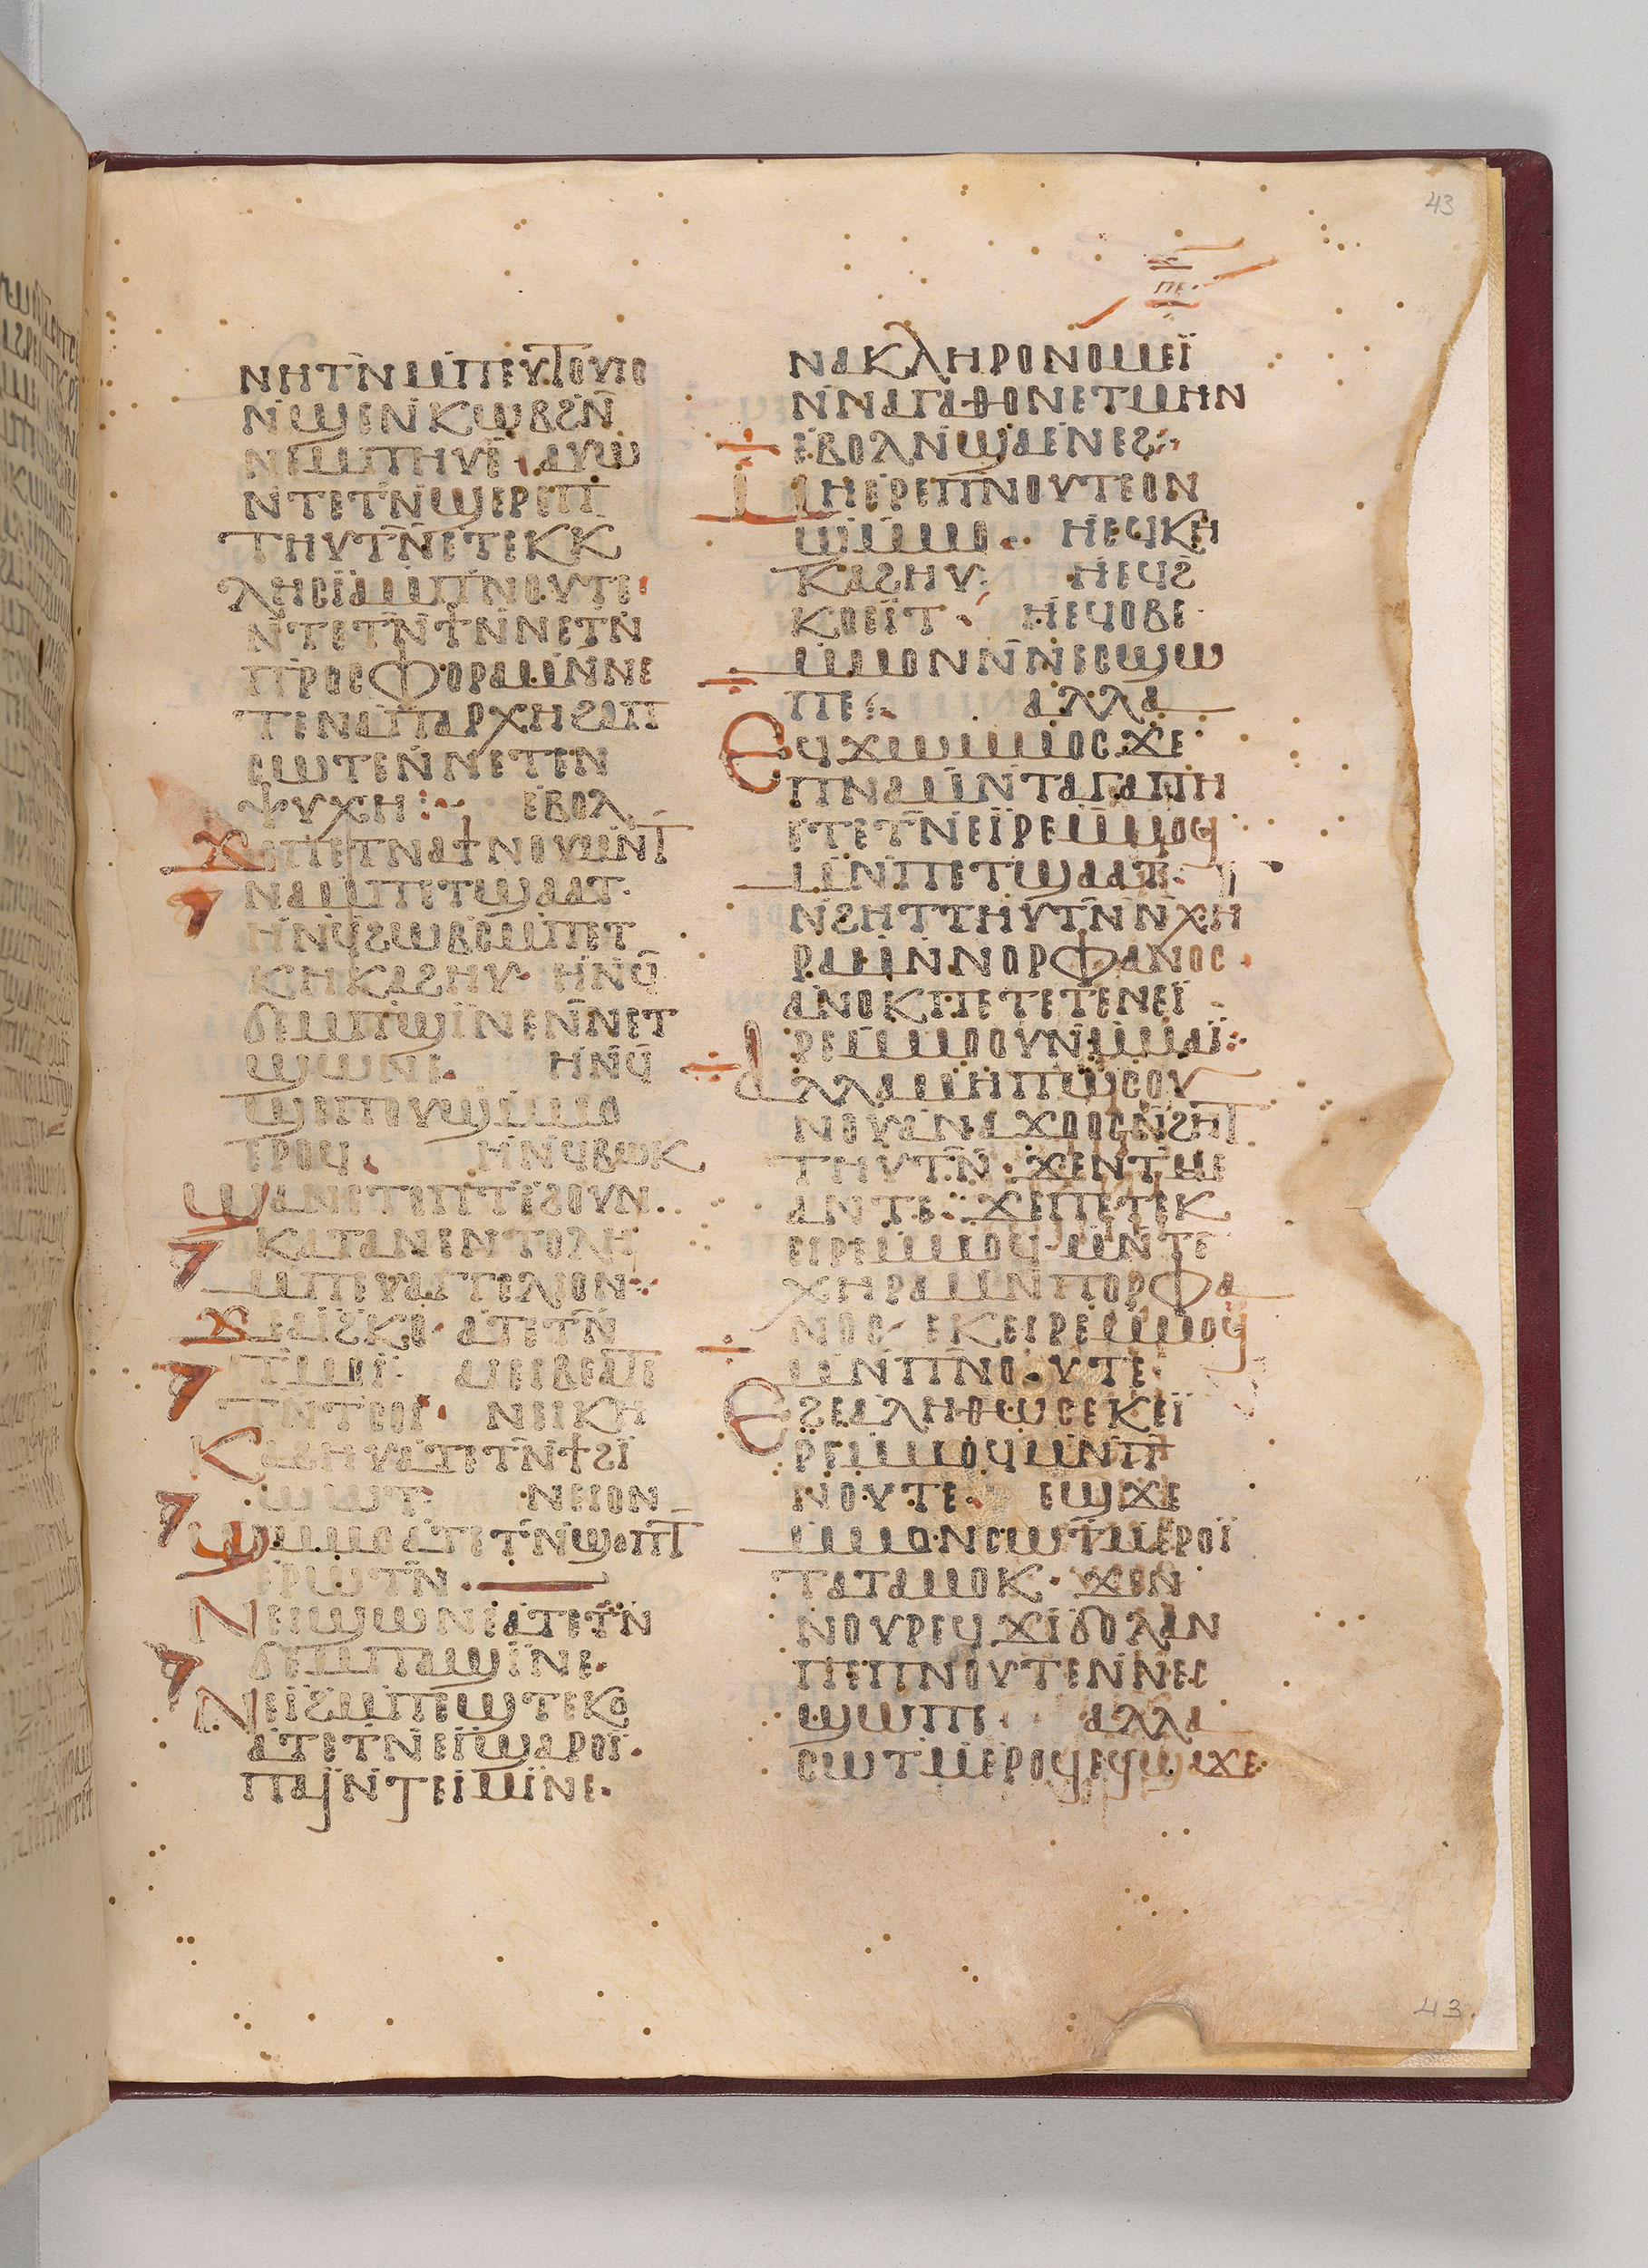 43
ⲡⲉ
ⲛⲏⲧⲛ̄ⲙⲡⲉⲩⲧⲟⲩⲓⲟ
ⲛ̄ϣⲉⲛⲕⲱⲃϩⲛ̄
ⲛⲉⲙⲡⲏⲩⲉ̄· ⲁⲩⲱ
ⲛ̄ⲧⲉⲧⲛ̄ϣⲉⲣⲉⲡ
ⲧⲏⲩⲧⲛ̄ⲉⲧⲉⲕⲕ
ⲗⲏⲥⲓⲁⲙⲡⲛⲟⲩⲧⲉ·
ⲛ̄ⲧⲉⲧⲛ̄ϯⲛ̄ⲛⲉⲧⲛ̄
ⲡⲣⲟⲥⲫⲟⲣⲁⲙⲛ̄ⲛⲉ
ⲧⲉⲛⲁⲡⲁⲣⲭⲏϩⲁⲡ
ⲥⲱⲧⲉⲛ̄ⲛⲉⲧⲉⲛ
ⲯⲩⲭⲏ: ⲉⲃⲟⲗ
ϫⲉⲡⲉⲧⲛⲁϯⲛⲟⲩⲙⲛ̄ⲧ
ⲛⲁⲙⲡⲉⲧϣⲁⲁⲧ·
ⲏⲛϥ̄ϩⲱⲃⲥⲙ̄ⲡⲉⲧ
ⲕⲏⲕⲁϩⲏⲩ· ⲏⲛϥ̄
ϭⲉⲙⲡϣⲓⲛⲉⲛ̄ⲛⲉⲧ
ϣⲱⲛⲉ· ⲏⲛϥ̄
ϣⲉⲡⲟⲩϣⲙ̄ⲙⲟ
ⲉⲣⲟϥ· ⲏⲛϥⲃⲱⲕ
ϣⲁⲛⲉⲧⲉⲡⲧⲉϩⲟⲩⲛ·
ⲕⲁⲧⲁⲛⲉⲛⲧⲟⲗⲏ
ⲙⲡⲉⲩⲁⲅⲅⲉⲗⲓⲟⲛ:
ϫⲉⲁⲓϩⲕⲟ· ⲁⲧⲉⲧⲛ̄
ⲧⲙⲟⲓ̈· ⲁⲓⲉⲓⲃⲉⲁⲧⲉ
ⲧⲛ̄ⲧⲥⲟⲓ· ⲛⲉⲓⲕⲏ
ⲕⲁϩⲏⲩⲁⲧⲉⲧⲛ̄ϯϩⲓ̈
ⲱⲱⲧ· ⲛⲉⲓⲟⲛ
ϣⲙ̄ⲙⲟⲁⲧⲉⲧⲛ̄ϣⲟⲡⲧ
ⲉⲣⲱⲧⲛ̄·
ⲛⲉⲓϣⲱⲛⲉⲁⲧⲉⲧⲛ̄
ϭⲉⲙⲡⲁϣⲓⲛⲉ·
ⲛⲉⲓϩⲙ̄ⲡⲉϣⲧⲉⲕⲟ
ⲁⲧⲉⲧⲛ̄ⲉⲓ̈ϣⲁⲣⲟⲓ̈·
ⲡⲁⲓ̈ⲛ̄ⲧⲉⲓⲙⲓⲛⲉ·
ⲛⲁⲕⲗⲏⲣⲟⲛⲟⲙⲉⲓ̈
ⲛ̄ⲛⲁⲅⲁⲑⲟⲛⲉⲧⲙⲏⲛ
ⲉⲃⲟⲗⲛ̄ϣⲁⲉⲛⲉϩ:
ⲙⲏⲉⲣⲉⲡⲛⲟⲩⲧⲉⲟⲛ
ϣⲙ̄ⲙⲟ· ⲏⲉϥⲕⲏ
ⲕⲁϩⲏⲩ: ⲏⲉϥϩ
ⲕⲟⲉⲓⲧ· ⲏⲉϥⲟⲃⲉ·
ⲙ̄ⲙⲟⲛⲛ̄ⲛⲉⲥϣⲱ
ⲡⲉ: ⲁⲗⲗⲁ
ⲉϥϫⲱⲙ̄ⲙⲟⲥϫⲉ
ⲡⲛⲁⲙⲛ̄ⲧⲁⲅⲁⲡⲏ
ⲉⲧⲉⲧⲛ̄ⲉⲓ̈ⲣⲉⲙ̄ⲙⲟϥ
ⲙⲛ̄ⲡⲉⲧϣⲁⲁⲧ·
ⲛ̄ϩⲏⲧⲧⲏⲩⲧⲛ̄ⲛ̄ⲭⲏ
ⲣⲁⲙⲛ̄ⲛⲟⲣⲫⲁⲛⲟⲥ·
ⲁⲛⲟⲕⲡⲉⲧⲉⲧⲉⲛⲉⲓ̈
ⲣⲉⲙ̄ⲙⲟⲟⲩⲛⲙ̄ⲙⲁⲓ̈:
ⲁⲗⲗⲁⲙⲏⲡⲱⲥⲟⲩ
ⲛⲟⲩⲁⲛⲁϫⲟⲟⲥⲛ̄ϩⲏⲧ
ⲧⲏⲩⲧⲛ̄· ϫⲉⲛⲧⲙⲉ
ⲁⲛⲧⲉ· ϫⲉⲡⲉⲧⲉⲕ
ⲉⲓⲣⲉⲙ̄ⲙⲟϥ ⲙⲛ̄ⲧⲉ
ⲭⲏⲣⲁⲙⲛ̄ⲡⲟⲣⲫⲁ
ⲛⲟⲥ· ⲉⲕⲉⲓⲣⲉⲙ̄ⲙⲟϥ
ⲙⲛ̄ⲡⲛⲟⲩⲧⲉ·
ⲉϩⲉⲁⲗⲏⲑⲱⲥⲉⲕⲉⲓ̈
ⲣⲉⲙ̄ⲙⲟϥⲙⲛ̄ⲡ
ⲛⲟⲩⲧⲉ· ⲉϣϫⲉ
ⲙ̄ⲙⲟⲛⲥⲱⲧⲙ̄ⲉⲣⲟⲓ̈
ⲧⲁⲧⲁⲙⲟⲕ· ϫⲉⲛ
ⲛⲟⲩⲣⲉϥϫⲓϭⲟⲗⲁⲛ
ⲡⲉⲡⲛⲟⲩⲧⲉⲛ̄ⲛⲉⲥ
ϣⲱⲡⲉ· ⲁⲗⲗⲁ
ⲥⲱⲧⲙ̄ⲉⲣⲟϥⲉϥϣⲁϫⲉ·
43.